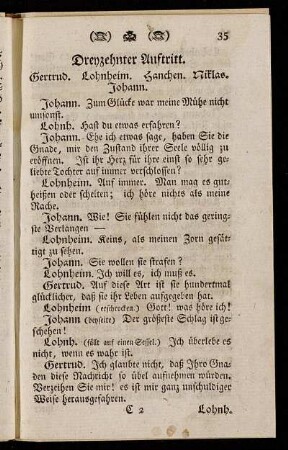 35
Dreyzehnter Auftritt.
Gertrud. Lohnheim. Hanchen. Niklas.
Johann.
Johann. Zum Glücke war meine Mühe nicht
umsonst.
Lohnh. Hast du etwas erfahren?
Johann. Ehe ich etwas sage, haben Sie die
Gnade, mir den Zustand ihrer Seele völlig zu
eröffnen. Ist ihr Herz für ihre einst so sehr ge-
liebte Tochter auf immer verschlossen?
Lohnheim. Auf immer. Man mag es gut-
heißen oder schelten; ich höre nichts als meine
Rache.
Johann. Wie! Sie fühlen nicht das gering-
ste Verlangen —
Lohnheim. Keins, als meinen Zorn gesät-
tigt zu sehen.
Johann. Sie wollen sie strafen?
Lohnheim. Ich will es, ich muß es.
Gertrud. Auf diese Art ist sie hundertmal
glücklicher, daß sie ihr Leben aufgegeben hat.
Lohnheim (erschrocken.) Gott! was höre ich!
Johann (beyseite) Der größeste Schlag ist ge-
schehen!
Lohnh. (fällt auf einen Sessel.) Ich überlebe es
nicht, wenn es wahr ist.
Gertrud. Ich glaubte nicht, daß Ihro Gna-
den diese Nachricht so übel aufnehmen würden.
Verzeihen Sie mir! es ist mir ganz unschuldiger
Weise herausgefahren.
C 2 Lohnh.